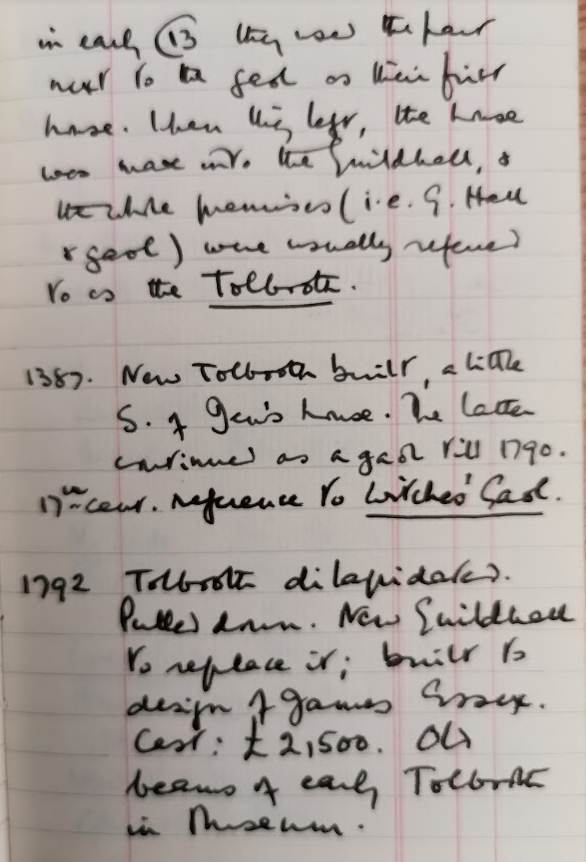 in early C13 they used the part
next to the gaol as their first
house. When they left, the house
was made into the Guildhall, &
the whole premises (i.e. G. Hall
& gaol) were usually referred
to as the Tolbooth.
1387. New Tolbooth built, a little
S. of Jew's house. The latter
continued as a gaol till 1790.
17th cent. reference to Witches' Gaol.
1792 Tolbooth dilapidated.
Pulled down. New Guildhall
to replace it; built to
design of James Essex.
Cost: £2,500. Old
beams of early Tolbooth
in Museum.